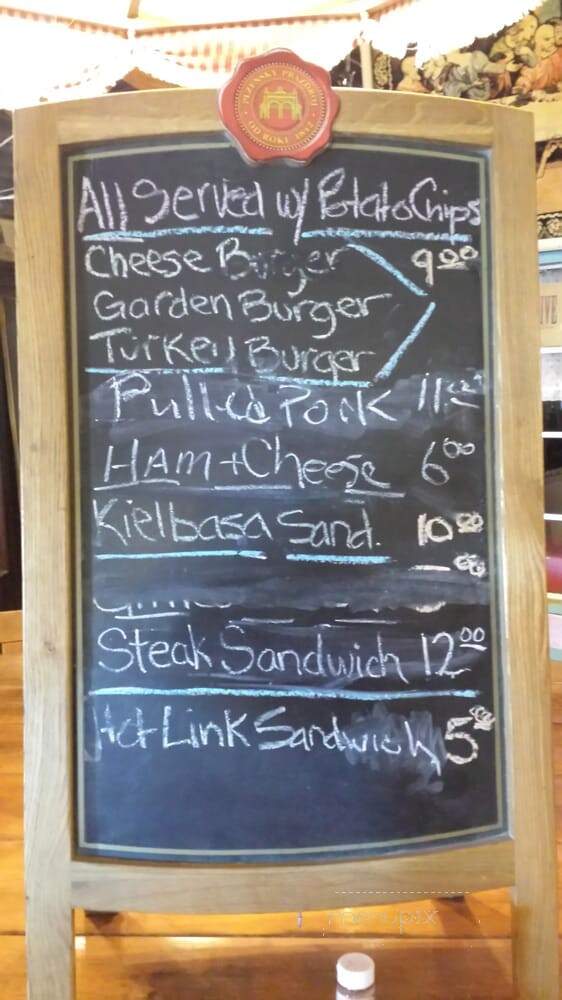 PLZEŇSKÝ PRAZDROJ
OD ROKU 1842
All Served w/ Potato Chips
Cheese Burger 9.00
Garden Burger
Turkey Burger
Pulled Pork 11.00
HAM + Cheese 6.00
Kielbasa Sand. 10.00
Steak Sandwich 12.00
Hot Link Sandwich 5.00